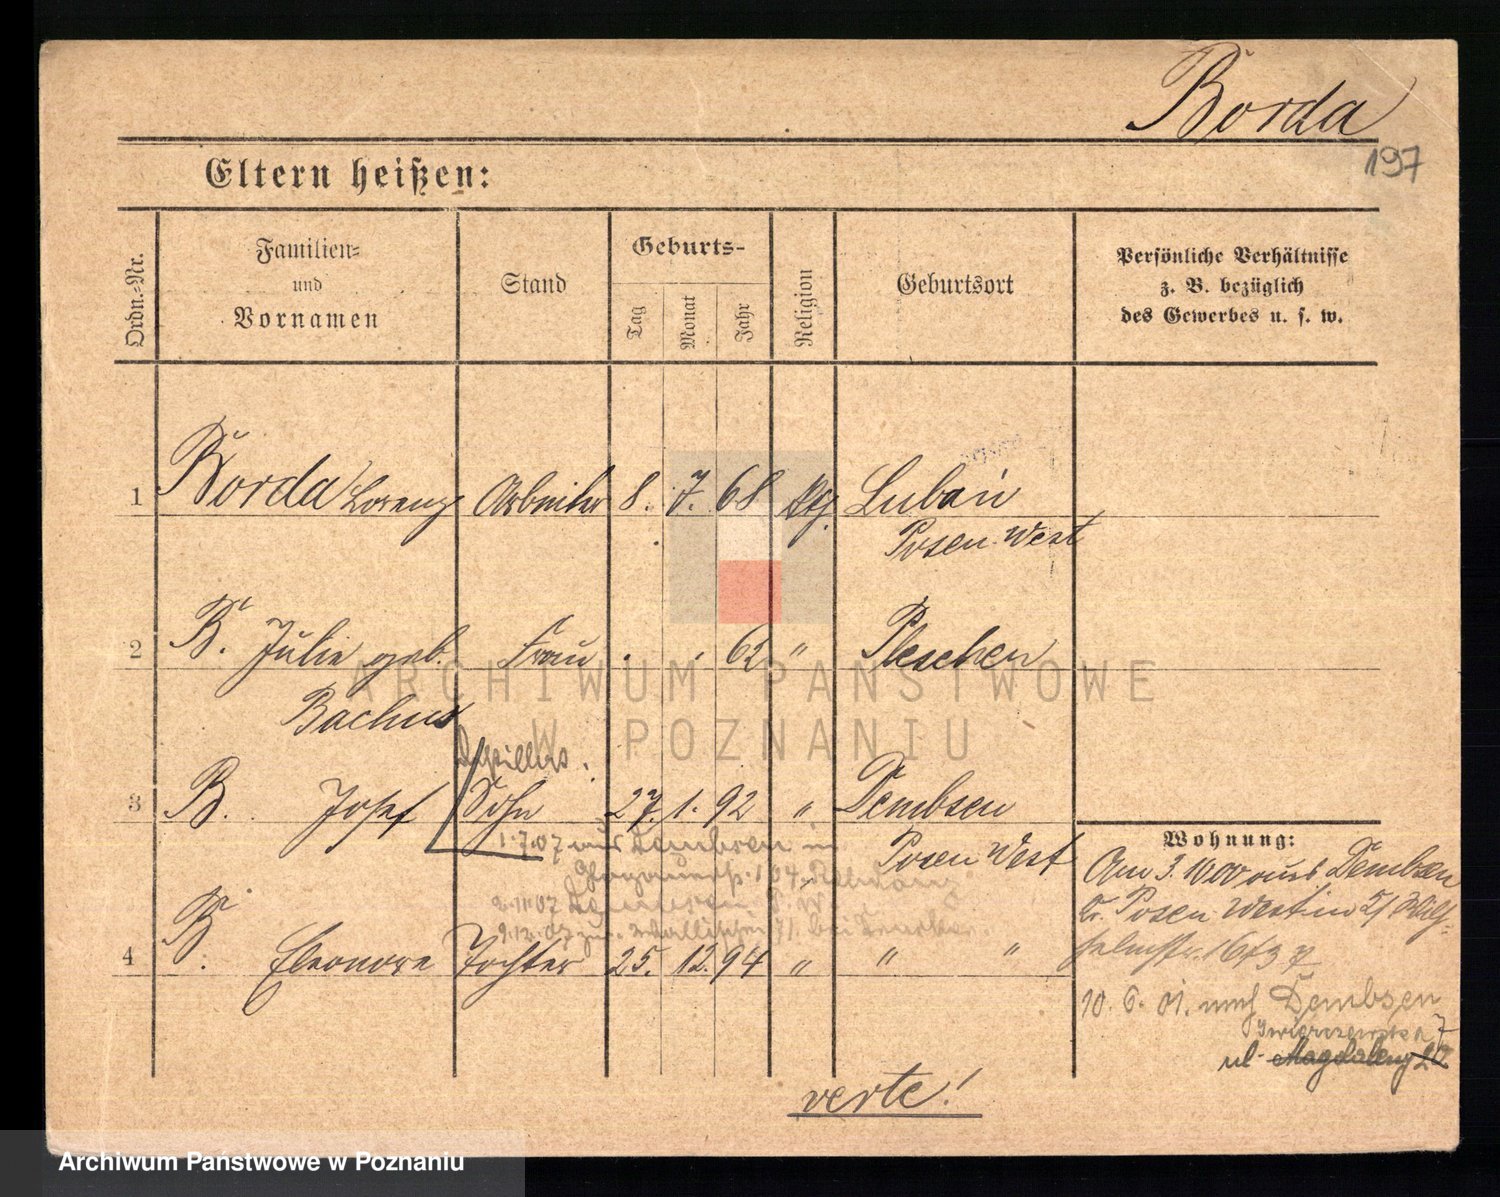 Borda
197
Eltern heißen:
Ordn.-Nr.
Familien-
und
Vornamen
Stand
Geburts-
Tag
Monat
Jahr
Religion
Geburtsort
Persönliche Verhältnisse
z. B. bezüglich
des Gewerbes u. s. w.
1 Borda Lorenz Arbeiter 8. 7. 68 Luban
Posen West
2 B. Julie geb. Frau . . 62 " Pleschen
Bachus
3 B. Josef Sohn 27. 1. 92 " Dembsen
Posen West
1.7.07 aus Dembsen in
2.11.07
9.12.07
4 B. Eleonore Tochter 25. 12. 94 " " "
Wohnung:
Am 3. 10 00 aus Dembsen
Kr. Posen West in
10. 6. 01. nach Dembsen
ul. Magdaleny
verte!
ARCHIWUM PAŃSTWOWE
W POZNANIU
Archiwum Państwowe w Poznaniu